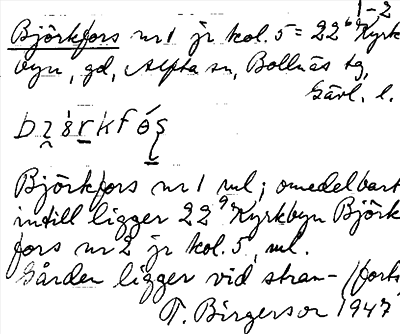 1-2
Björkfors nr 1 jr kol. 5 = 22⁶ Kyrk
byn, gd, Alfta sn, Bollnäs tg,
Gävl. l.
Björkfors nr 1 ml; omedelbart
intill ligger 22⁹ Kyrkbyn Björk
fors nr 2 jr kol. 5, ml.
Gården ligger vid stran- (forts.
T. Birgerson 1947